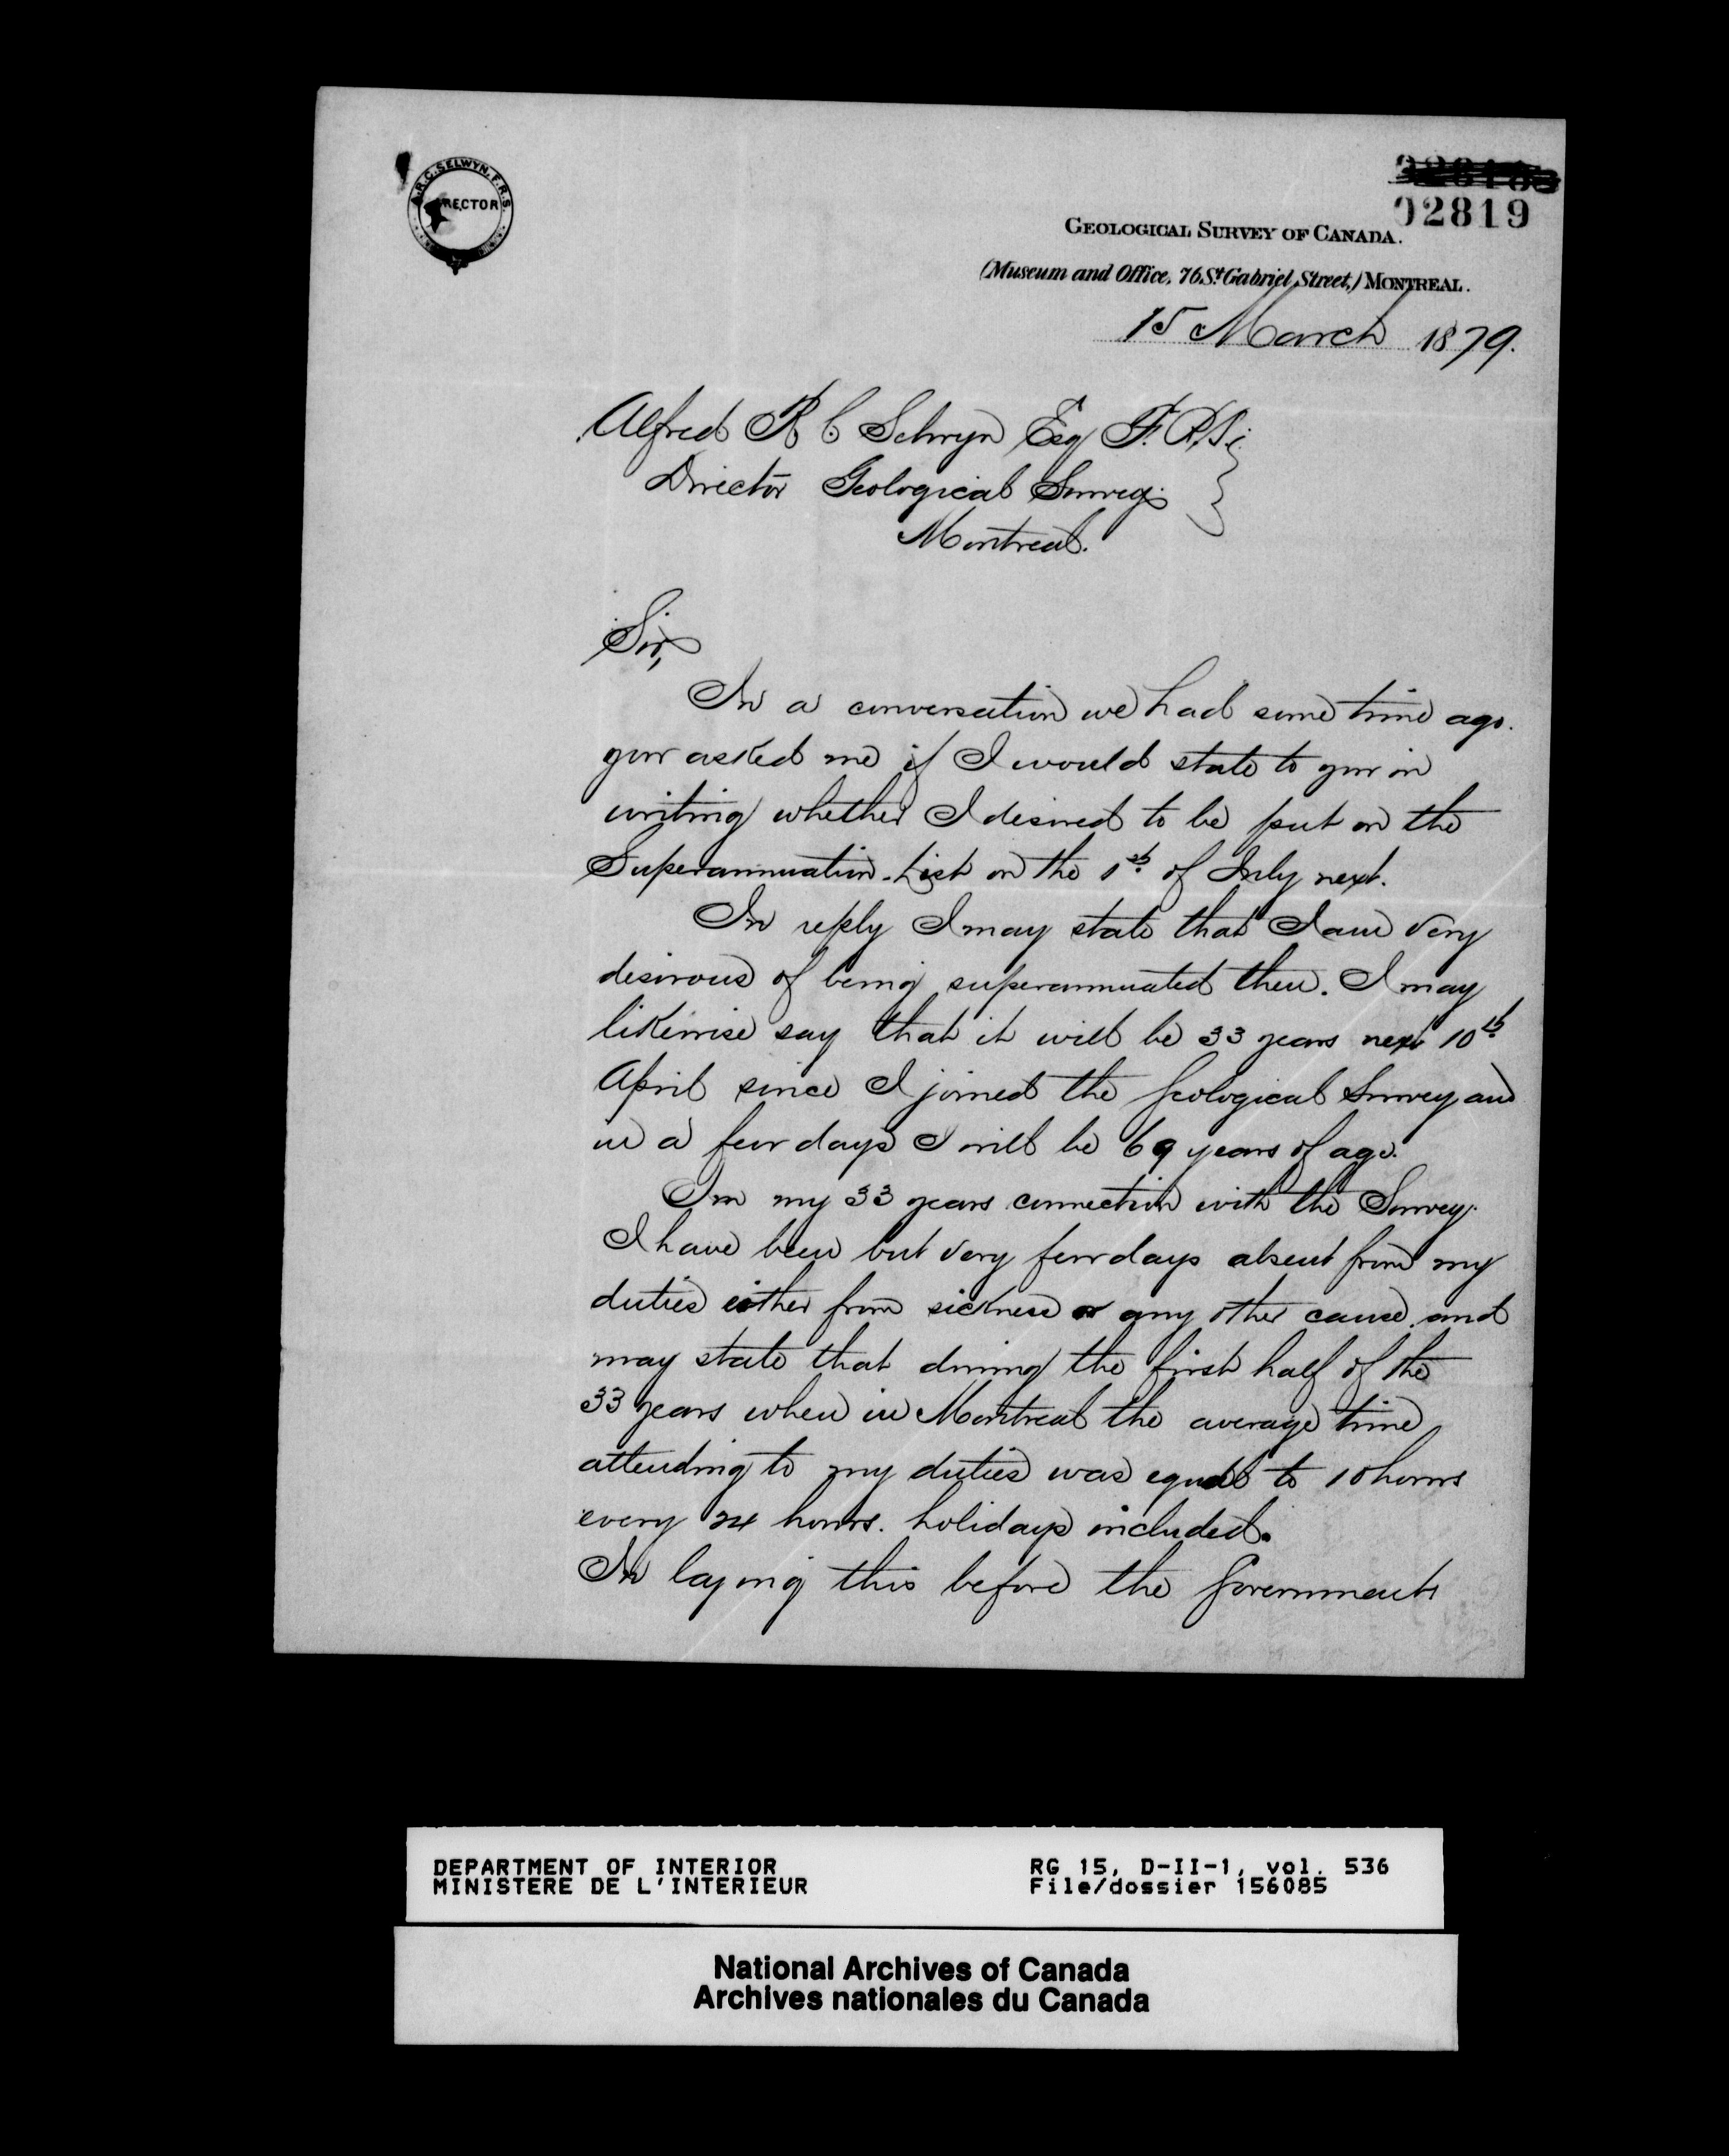 A.R.C. SELWYN. F.R.S.
RECTOR
02819
GEOLOGICAL SURVEY OF CANADA.
(Museum and Office, 76, St. Gabriel Street,) MONTREAL.
15 March 1879.
Alfred R C Selwyn Esq F.R.S.
Director Geological Survey
Montreal.
Sir,
In a conversation we had some time ago.
you asked me if I would state to you in
writing whether I desired to be put on the
Superannuation List on the 1st of July next.
In reply I may state that I am very
desirous of being superannuated then. I may
likewise say that it will be 33 years next 10th
April since I joined the Geological Survey and
in a few days I will be 69 years of age.
In my 33 years connection with the Survey.
I have been but very few days absent from my
duties either from sickness or any other cause and
may state that during the first half of the
33 years when in Montreal the average time
attending to my duties was equal to 10 hours
every 24 hours. holidays included.
In laying this before the Government
DEPARTMENT OF INTERIOR
MINISTERE DE L'INTERIEUR
RG 15, D-II-1, vol. 536
File/dossier 156085
National Archives of Canada
Archives nationales du Canada